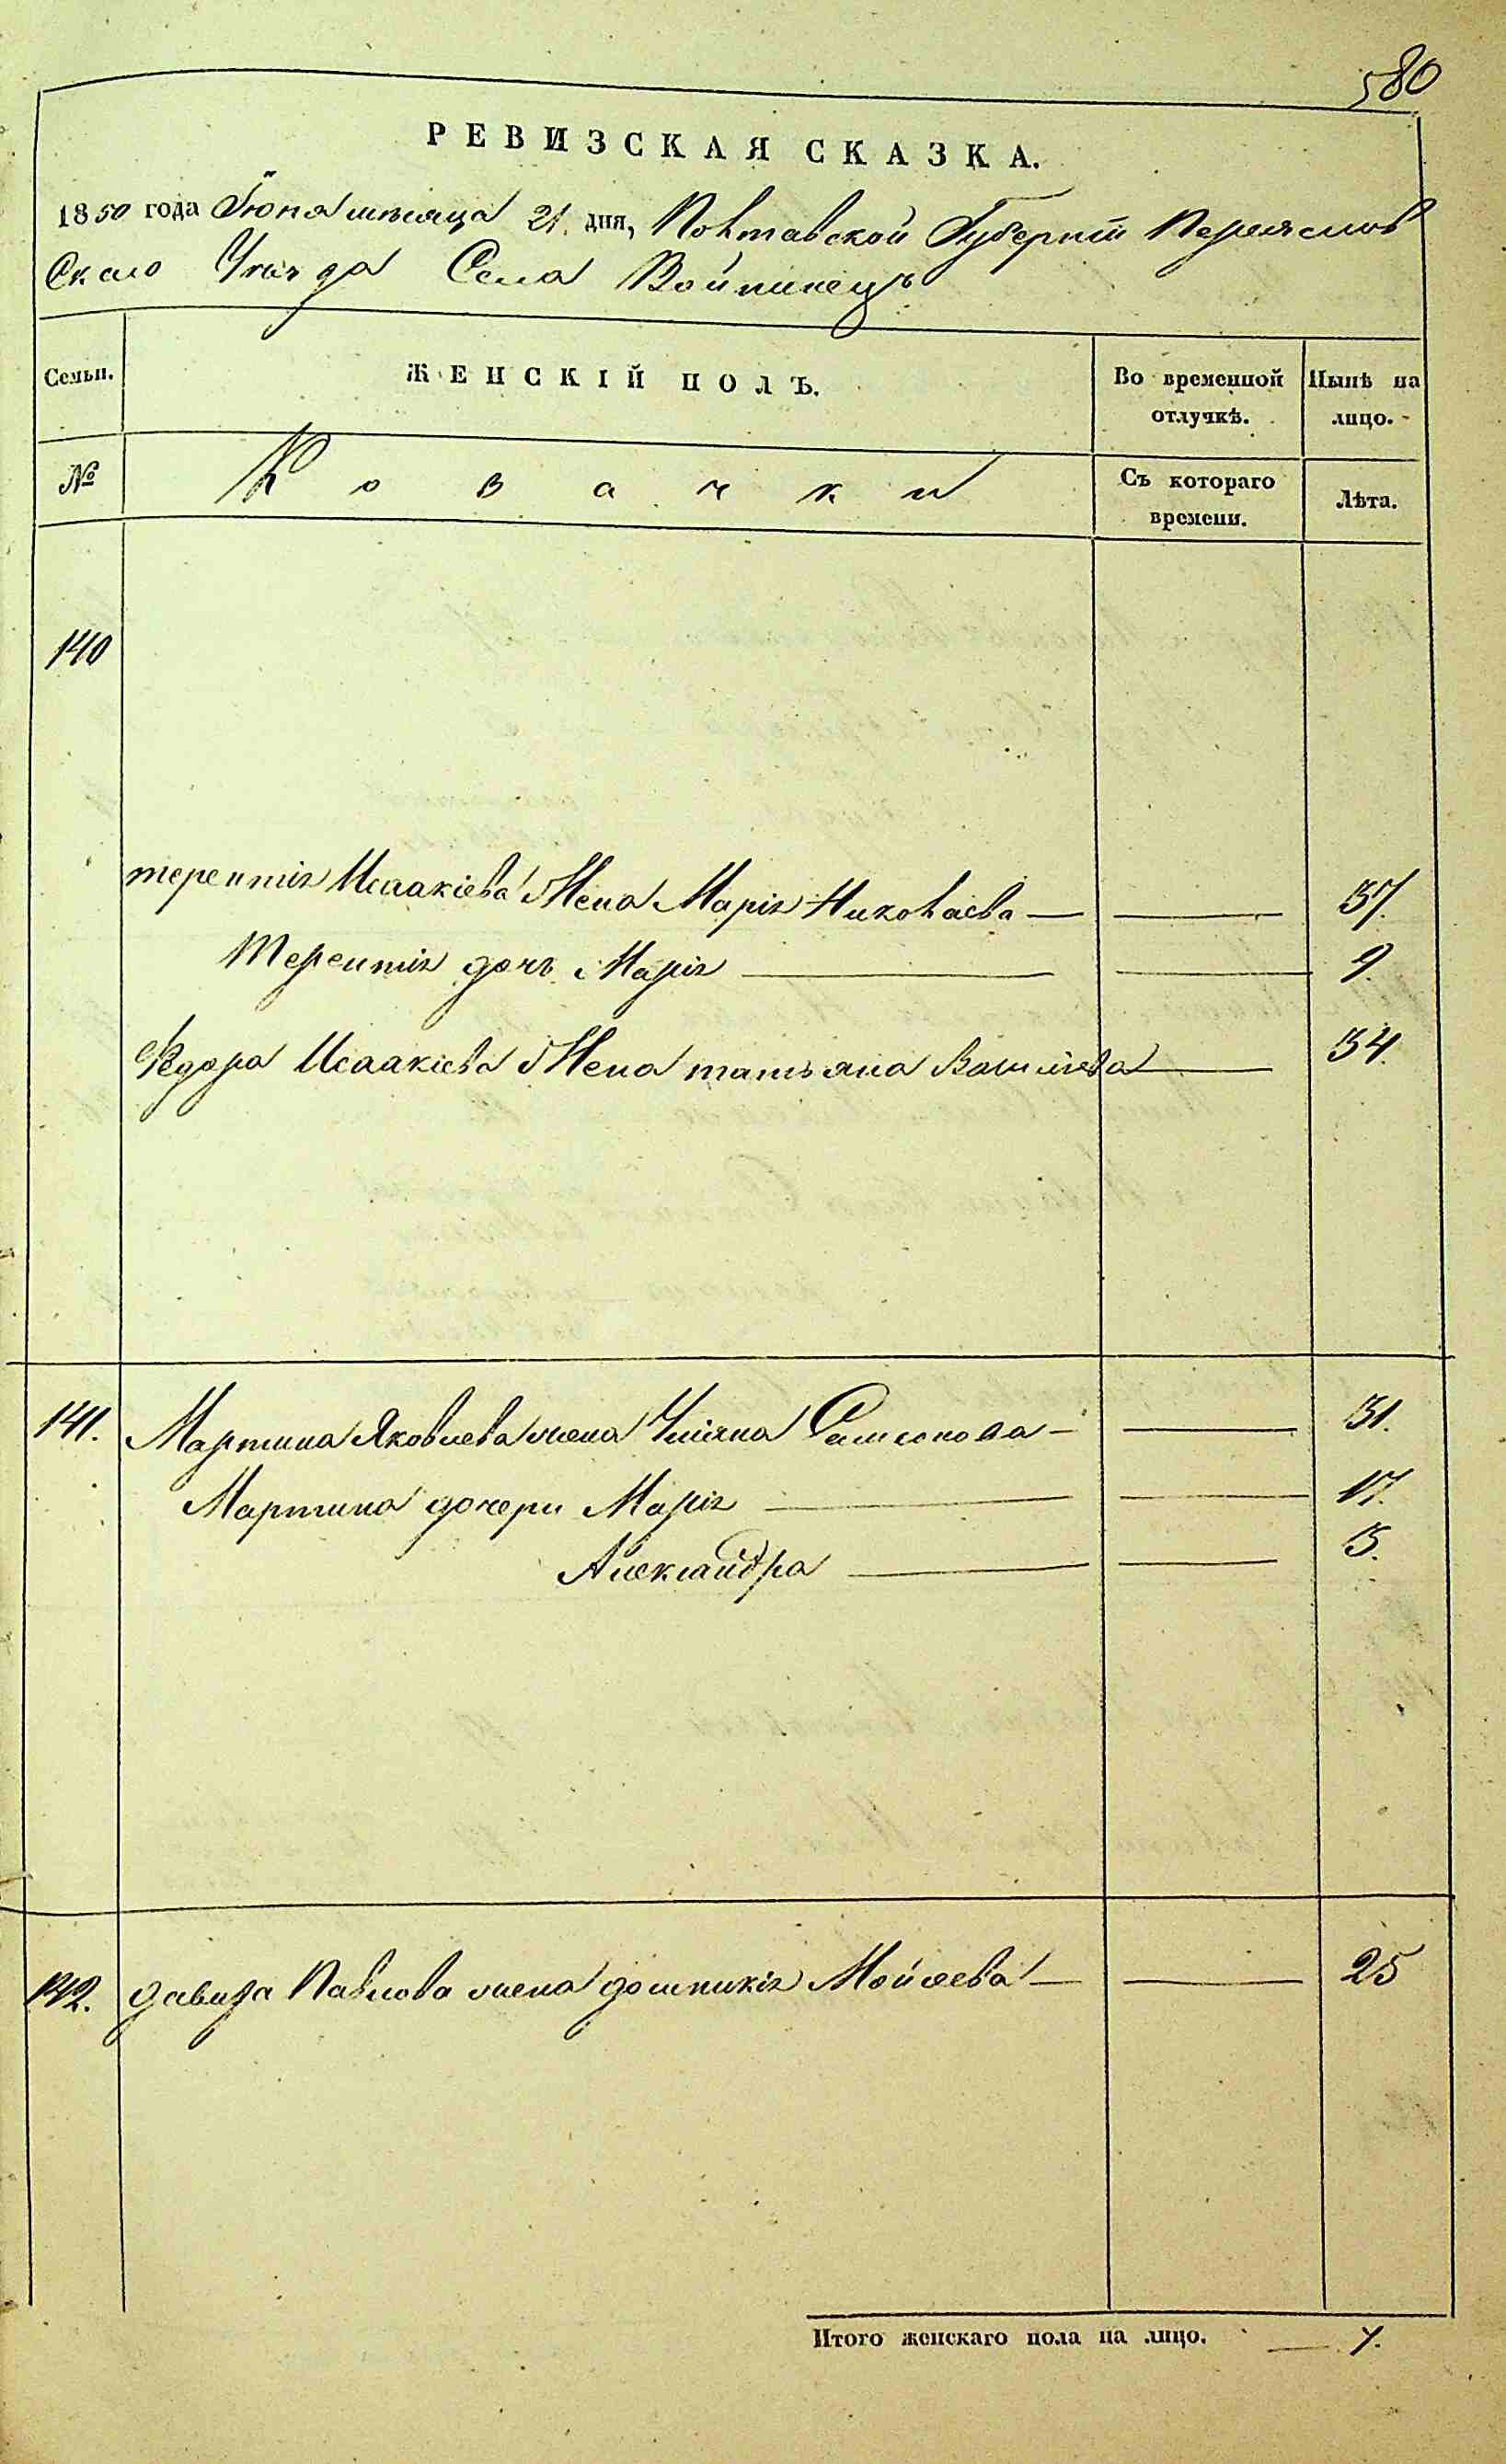 580
РЕВИЗСКАЯ СКАЗКА.
1850 года Іюня мѣсяца 21. дня, Полтавской Губерніи Переяслов
Скаго Уѣзда Села Войтинецъ
Семьи. ЖЕНСКІЙ ПОЛЪ. Во временной отлучкѣ. Нынѣ на лицо.
№ Козачки Съ котораго времени. Лѣта.
140
терентія Исаакіева Жена Марія Николаева — — 37.
Терентія дочь Марія — — 9.
Федора Исаакіева Жена татьяна Васильева — 34.
141. Мартина Яковлева жена Уліяна Самсонова — — 31.
Мартина дочери Марія — — 17.
Александра — — 5.
142. давида Павлова жена домникія Мойсеева — — 25
Итого женскаго пола на лицо. — 7.